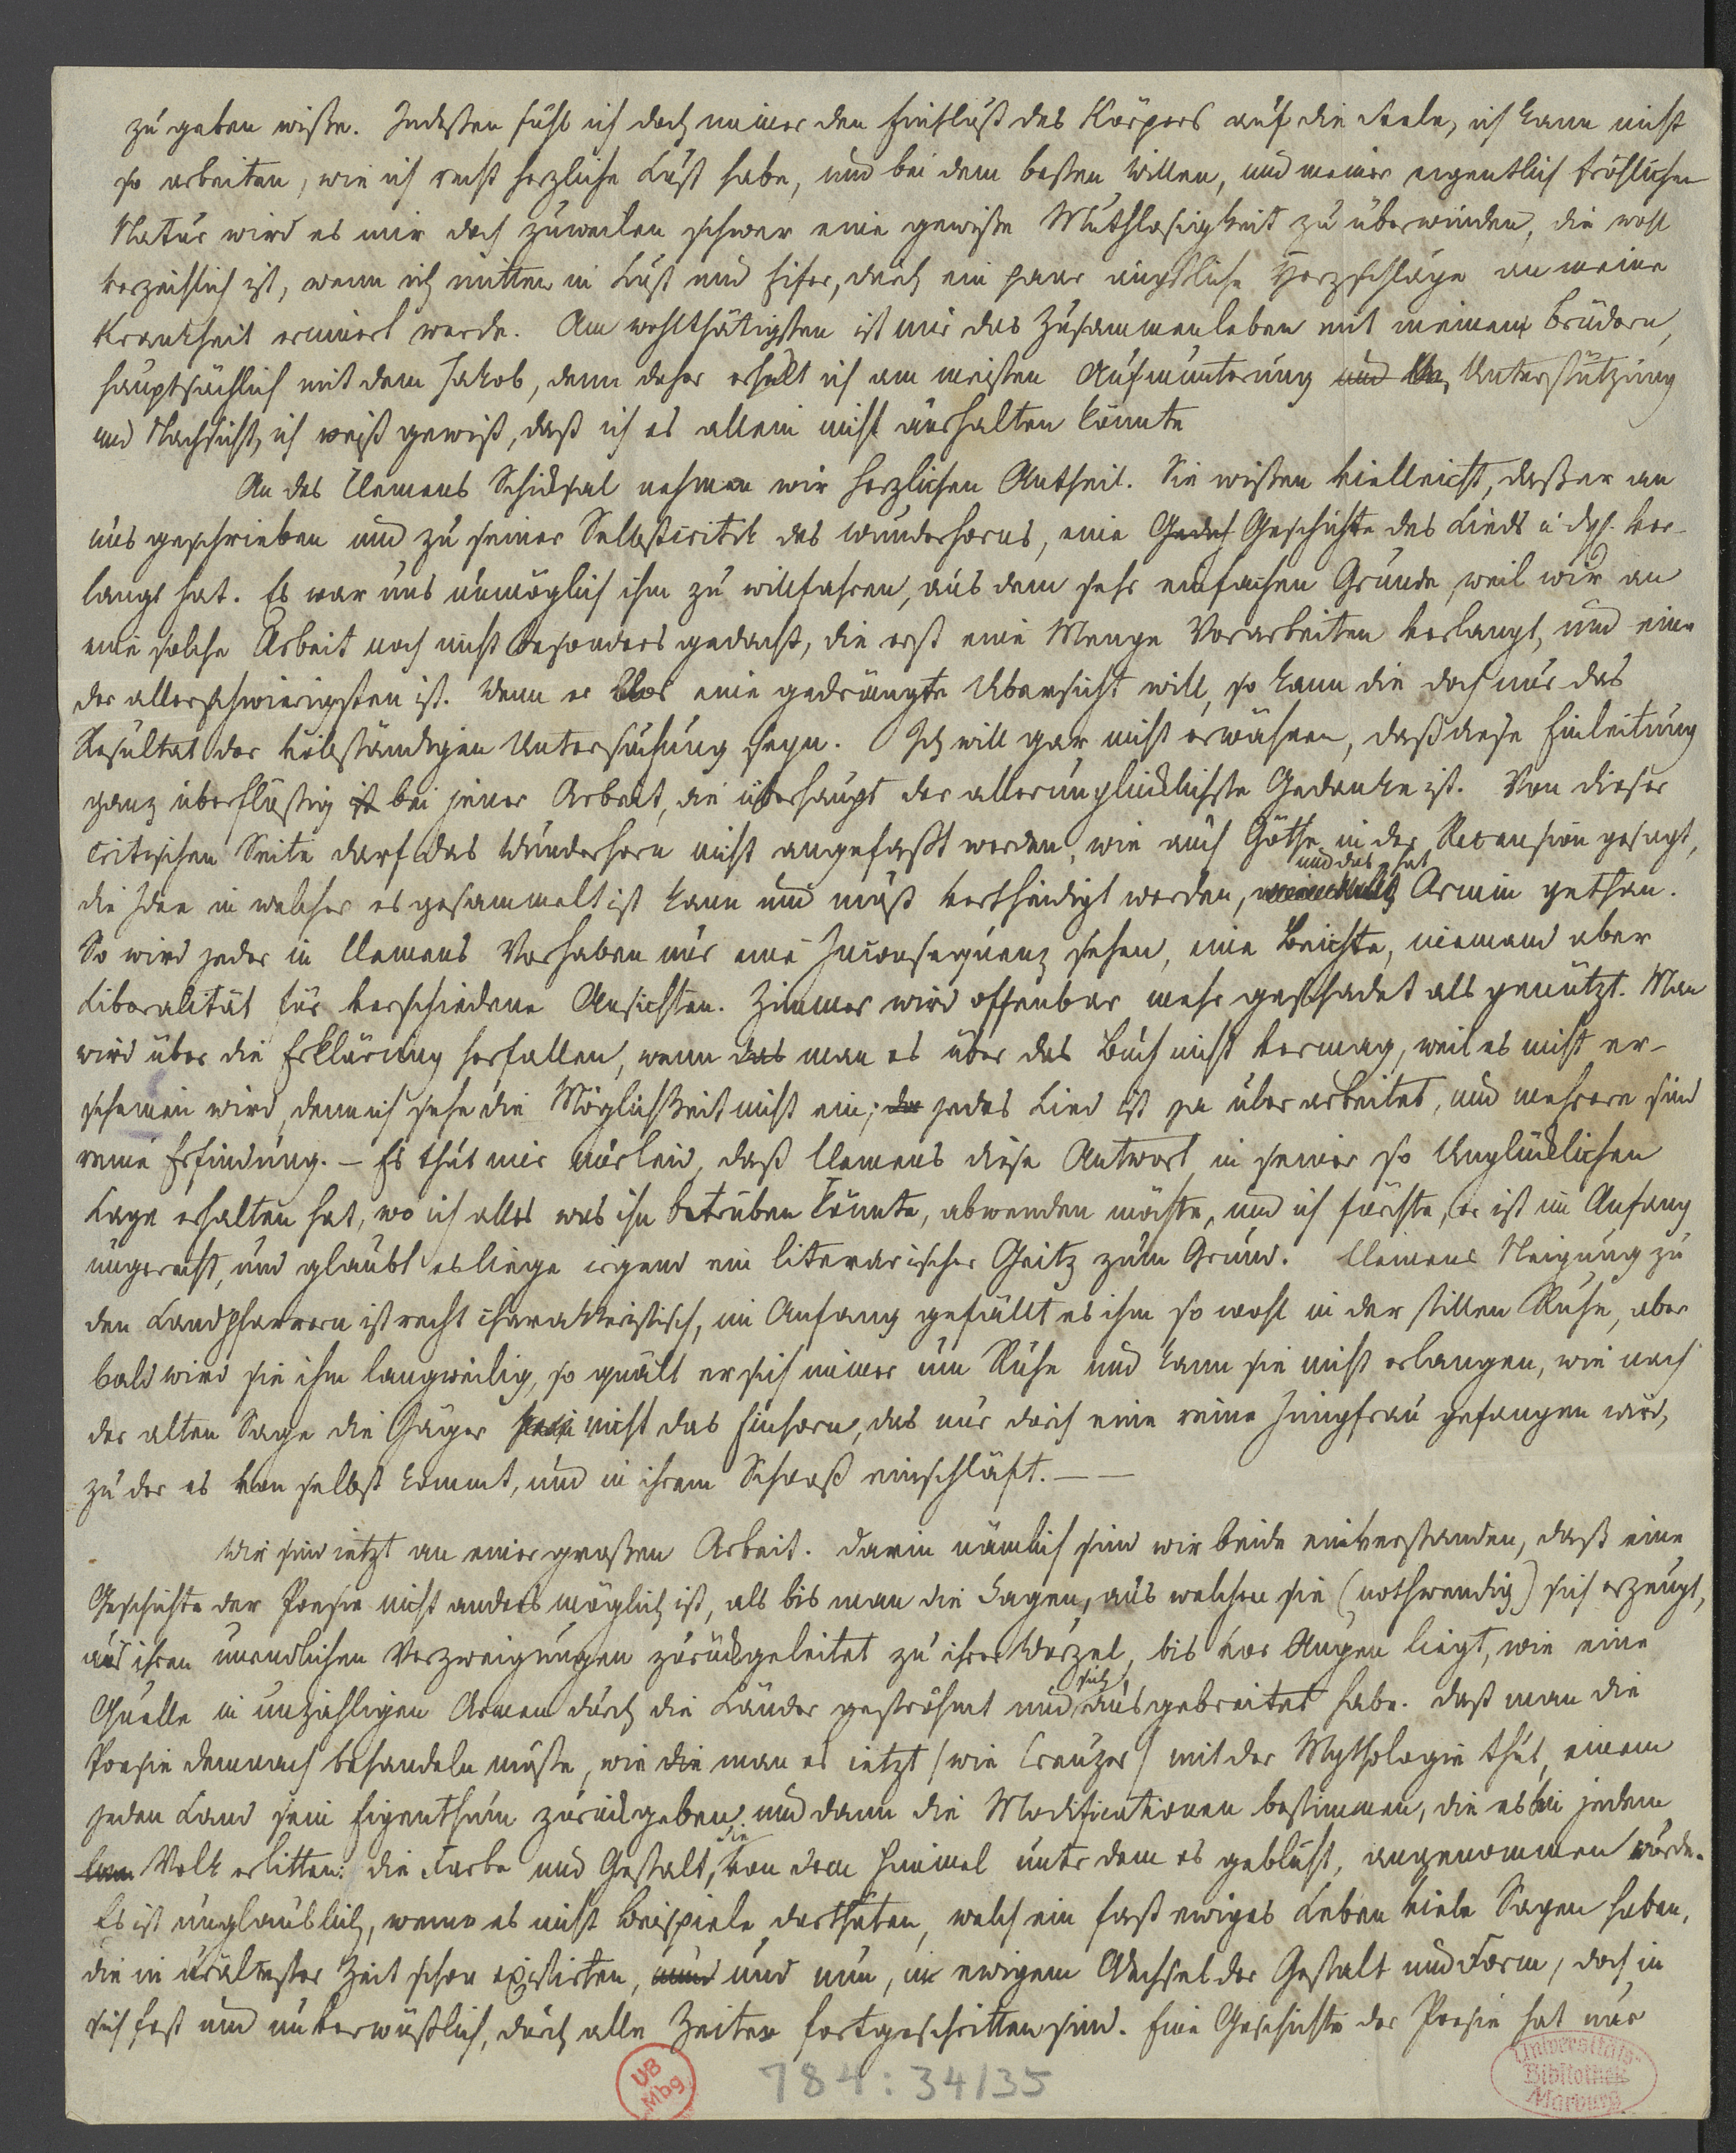 zu geben wiße. Indeßen fühl ich doch immer den Einfluß des Körpers auf die Seele, ich kann nicht
so arbeiten, wie ich recht herzliche Lust habe, und bei dem besten Willen, und meiner eigentlich fröhlichen
Natur wird es mir doch zuweilen schwer eine gewiße Muthlosigkeit zu überwinden, die wohl
verzeihlich ist, wenn ich mitten in Lust und Eifer, durch ein paar ängstliche Herzschläge an meine
Krankheit erinnert werde. Am wohlthätigsten ist mir das Zusammenleben mit meinen Brüdern,
hauptsächlich mit dem Jakob, denn daher erhalt ich am meisten Aufmunterung und Un, Unterstützung
und Nachsicht, ich weiß gewiß, daß ich es allein nicht aushalten könnte
An des Clemens Schicksal nehmen wir herzlichen Antheil. Sie wißen vielleicht, daß er an
uns geschrieben und zu seiner Selbstcritik des Wunderhorns, eine Gesch Geschichte des Lieds u. dgl. ver-
langt hat. Es war uns unmöglich ihm zu willfahren, aus dem sehr einfachen Grunde, weil wir an
eine solche Arbeit noch nicht besonders gedacht, die erst eine Menge Vorarbeiten verlangt, und eine
der allerschwierigsten ist. Wenn er blos eine gedrängte Übersicht will, so kann die doch nur das
Resultat der vollständigen Untersuchung seyn. Ich will gar nicht erwähnen, daß diese Einleitung
ganz überflüßig ist bei jener Arbeit, die überhaupt der allerunglücklichste Gedanke ist. Von dieser
critischen Seite darf das Wunderhorn nicht angefaßt werden, wie auch Göthe in der Recension gesagt,
und das hat
die Idee in welcher es gesammelt ist kann und muß vertheidigt werden, Arnim gethan.
So wird jeder in Clemens Vorhaben nur eine Inconsequenz sehen, eine Beichte, niemand aber
Liberalität für verschiedene Ansichten. Zimmer wird offenbar mehr geschadet als genützt. Man
wird über die Erklärung herfallen, wenn das man es über das Buch nicht vermag, weil es nicht er-
scheinen wird, denn ich sehe die Möglichkeit nicht ein; da jedes Lied ist ja überarbeitet, und mehrere sind
reine Erfindung. – Es thut mir nur leid, daß Clemens diese Antwort in seiner so Unglücklichen
Lage erhalten hat, wo ich alles was ihn betrüben könnte, abwenden möchte, und ich fürchte, er ist im Anfang
ungerecht, und glaubt es liege irgend ein literarischer Geitz zum Grund. Clemens Neigung zu
den Landpfarrern ist recht charakteristisch, im Anfang gefällt es ihm so wohl in der stillen Ruhe, aber
bald wird sie ihm langweilig, so quält er sich immer um Ruhe und kann sie nicht erlangen, wie nach
der alten Sage die Jäger nicht das Einhorn, das nur durch eine reine Jungfrau gefangen wird,
zu der es von selbst kommt, und in ihrem Schooß einschläft. — —
Wir sind ietzt an einer großen Arbeit. Darin nämlich sind wir beide einverstanden, daß eine
Geschichte der Poesie nicht anders möglich ist, als bis man die Sagen, aus welchen sie (nothwendig) sich erzeugt,
aus ihren unendlichen Verzweigungen zurückgeleitet zu ihrer Wurzel, bis vor Augen liegt, wie eine
sich
Quelle in unzähligen Armen durch die Länder geströhmt und ausgebreitet habe. Daß man die
Poesie demnach behandeln müßte, wie die man es ietzt (wie Creuzer) mit der Mythologie thut, einem
jeden Land sein Eigenthum zurückgeben und dann die Modificationen bestimmen, die es bei jedem
die
Volk erlitten: die Farbe und Gestalt, von dem Himmel unter dem es geblüht, angenommen wurde.
Es ist unglaublich, wenn es nicht Beispiele darthäten, welch ein fast ewiges Leben viele Sagen haben,
die in uraltester Zeit schon existirten, und und nun, in ewigem Wechsel der Gestalt und Form, doch in
sich fest und unverwüstlich, durch alle Zeiten fortgeschritten sind. Eine Geschichte der Poesie hat nur
UB
Mbg
784:34/35
Universitäts-
Bibliothek
Marburg